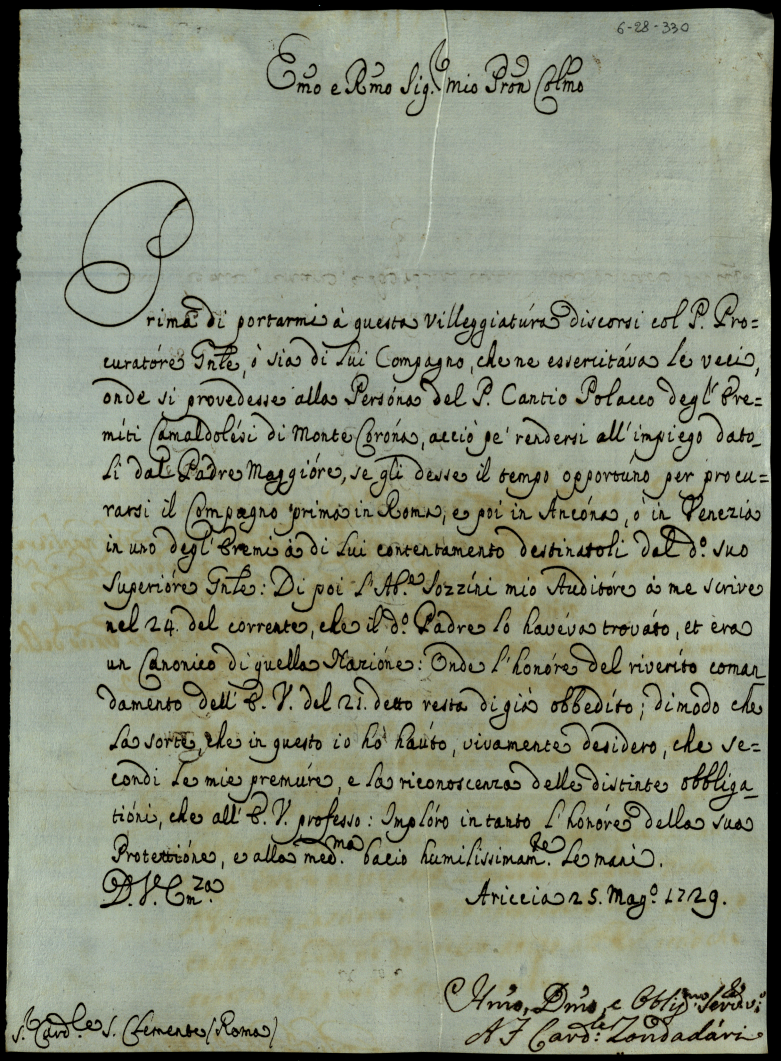 6-28-330
Emo e Rmo Sig.r mio Pron Colmo
Prima di portarmi à questa Villeggiatúra discorsi col P. Pro=
curatóre Gnle, ò sia di lui Compagno, che ne essercitáva le veci,
onde si provedesse alla Persóna del P. Cantio Polacco degl' Ere=
míti Camaldolési di Monte Coróna, acciò pe' rendersi all' impiego dato=
li dal Padre Maggióre, se gli desse il tempo opportúno per procu=
rarsi il Compagno prima in Roma, e poi in Ancóna, ò in Venezia
in uno degl' Eremi à di lui contentamento destinatoli dal do. suo
Superióre Gnle: Di poi l'Ab.e Sozzíni mio Auditóre à me scrive
nel 24. del corrente, che il do. Padre lo havéva trováto, et era
un Canonico di quella Nazióne: Onde l'honóre del riveríto coman=
damento dell' E. V. del 21. detto resta di già obbedíto; dimodo che
la sorte, che in questo io hò haúto, vivamente desidero, che se=
condi le mie premúre, e la riconoscenza delle distinte obbliga=
tióni, che all' E. V. professo: Implóro intanto l'honóre della sua
Protettióne, e alla med.ma bacio humilissimam.te le mani.
D. V. Em.za
Ariccia 25. Mago. 1729.
Hmo, Dmo, e Oblig.mo Serv.
A F Card.le Zondadári
S.r Card.le S. Clemente (Roma)